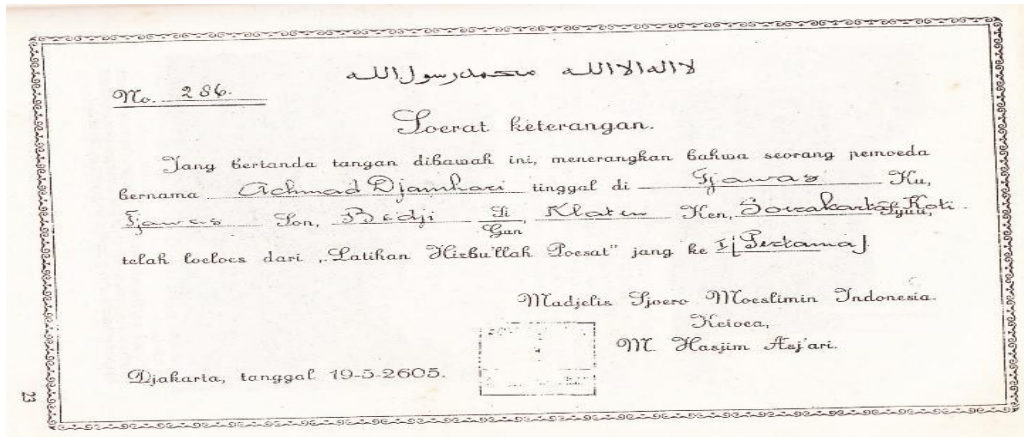 لا اله الا الله محمد رسول الله
No. 286.
Soerat keterangan.
Jang bertanda tangan dibawah ini, menerangkan bahwa seorang pemoeda
bernama Achmad Djamhari tinggal di Tjawas Ku,
Tjawas Son, Bedji Si Gun Klaten Ken, Soerakarta Koti Syuu,
telah loeloes dari „Latihan Hizbu'llah Poesat" jang ke I [Pertama]
Madjelis Sjoero Moeslimin Indonesia.
Ketoea,
M. Hasjim Asj'ari.
Djakarta, tanggal 19-5-2605.
23